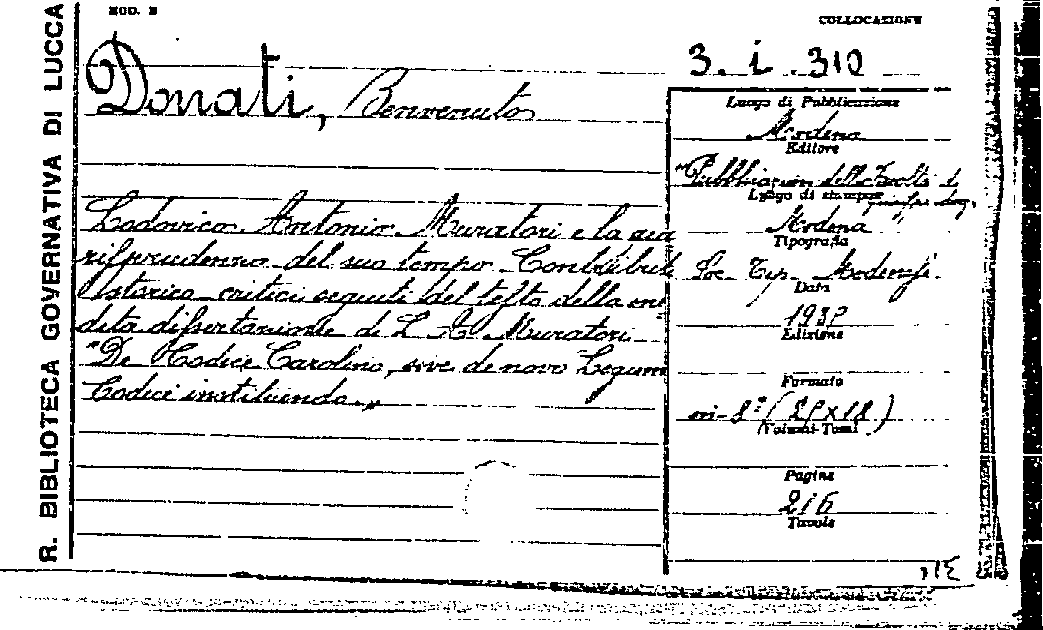 MOD. B
COLLOCAZIONE
R. BIBLIOTECA GOVERNATIVA DI LUCCA
3. i. 310
Donati, Benvenuto
Luogo di Pubblicazione
Modena
Editore
"Pubblicazioni della Facoltà di
Luogo di stampa
Modena
Tipografia
Soc. Tip. Modenese
Data
Edizione
Formato
in-8°
Volumi-Tomi
Pagine
216
Tavole
Lodovico Antonio Muratori e la giu
risprudenza del suo tempo. Contributi
storico-critici seguiti del testo della ine
dita dissertazione di L. A. Muratori
"De Codice Carolino, sive de novo Legum
Codice instituendo."